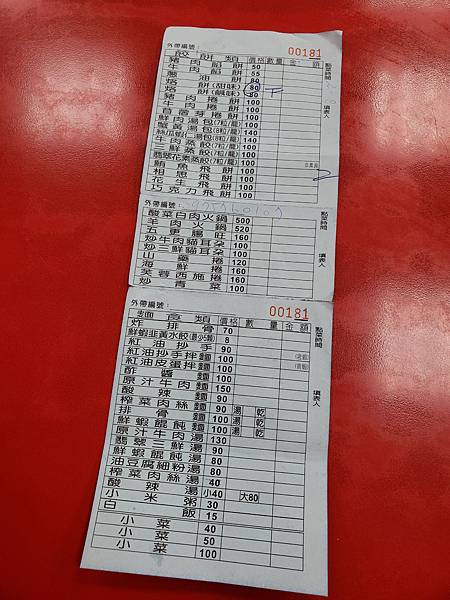 外帶編號： 00181
餃餅類 價格 數量 金額
豬肉餡餅 50
牛肉餡餅 55
蔥油餅 80
烙餅(甜味) 80
烙餅(鹹味) 80
豬肉捲餅 100
牛肉捲餅 100
苜蓿芽捲餅 100
鮮肉湯包(7粒/籠) 100
蟹黃湯包(8粒/籠) 140
絲瓜蝦仁湯包(8粒/籠) 140
牛肉蒸餃(7粒/籠) 100
三鮮蒸餃(7粒/籠) 100
翡翠花素蒸餃(7粒/籠) 100
鮪魚飛餅 100
相思飛餅 100
花生飛餅 100
巧克力飛餅 100
點菜時間
填表人
外帶編號：
酸菜白肉火鍋 500
羊肉火鍋 520
五更腸旺 160
炒牛肉貓耳朵 100
炒三鮮貓耳朵 100
山藥捲 120
海鮮捲 160
芙蓉西施捲 160
炒青菜 100
點菜時間
填表人
外帶編號： 00181
麵食類 價格 數量 金額
炸排骨 70
鮮蝦韭黃水餃(最少5顆) 8
紅油抄手 90
紅油抄手拌麵 100
紅油皮蛋拌麵 100
酢醬麵 90
原汁牛肉麵 150
酸辣麵 90
榨菜肉絲麵 90 湯 乾
排骨麵 100 湯 乾
鮮蝦餛飩麵 100 湯 乾
原汁牛肉湯 130
翡翠三鮮湯 90
鮮蝦餛飩湯 80
油豆腐細粉湯 80
榨菜肉絲湯 40
酸辣湯 小40 大80
小米粥 30
白飯 15
小菜 40
小菜 50
小菜 100
點菜時間
填表人